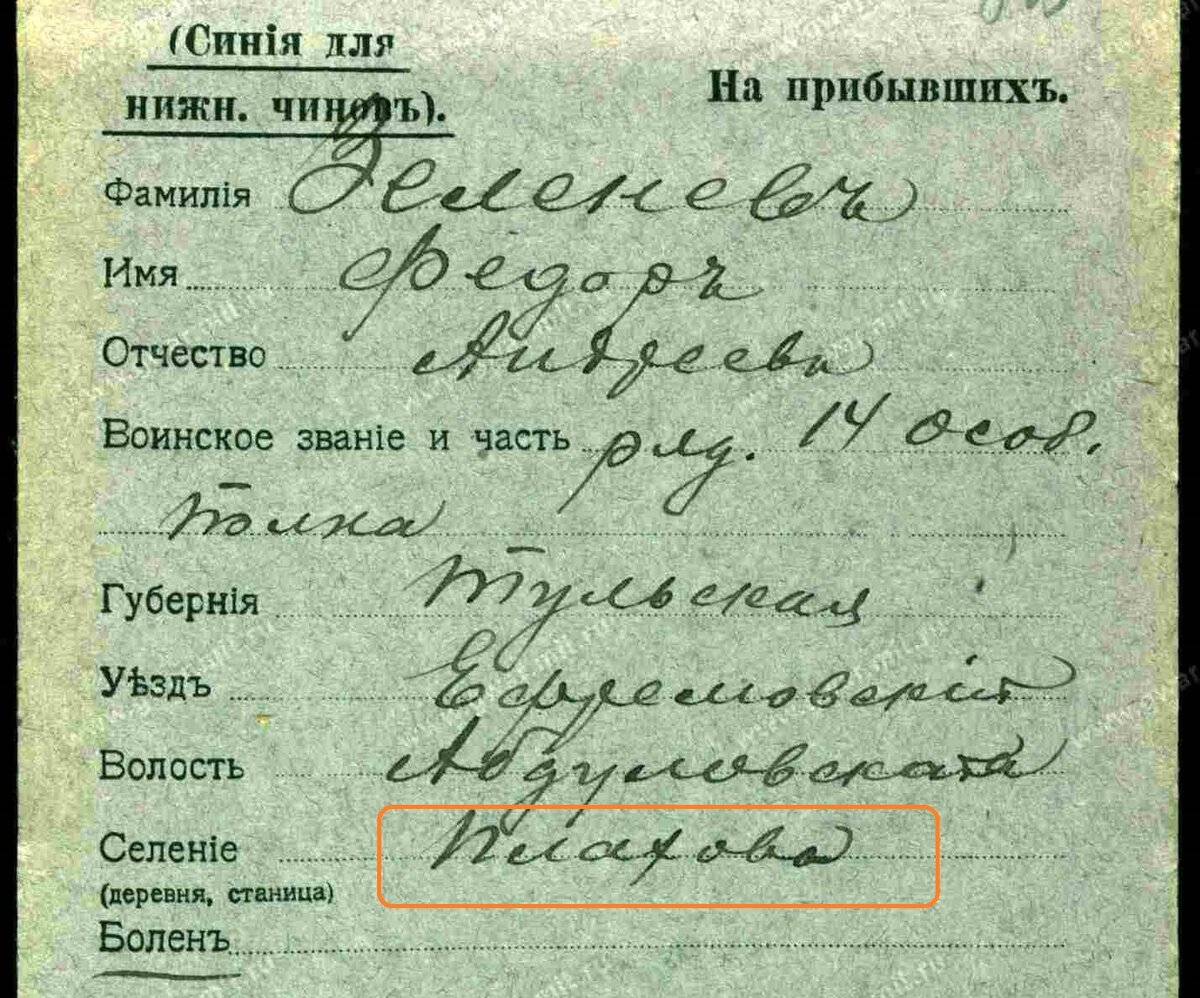 (Синія для
нижн. чиновъ).
На прибывшихъ.
Фамилія Зеленевъ
Имя Федоръ
Отчество Андреевъ
Воинское званіе и часть ряд. 14 особ.
Полка
Губернія Тульская
Уѣздъ Ефремовскій
Волость Абдуловская
Селеніе Плахова
(деревня, станица)
Боленъ